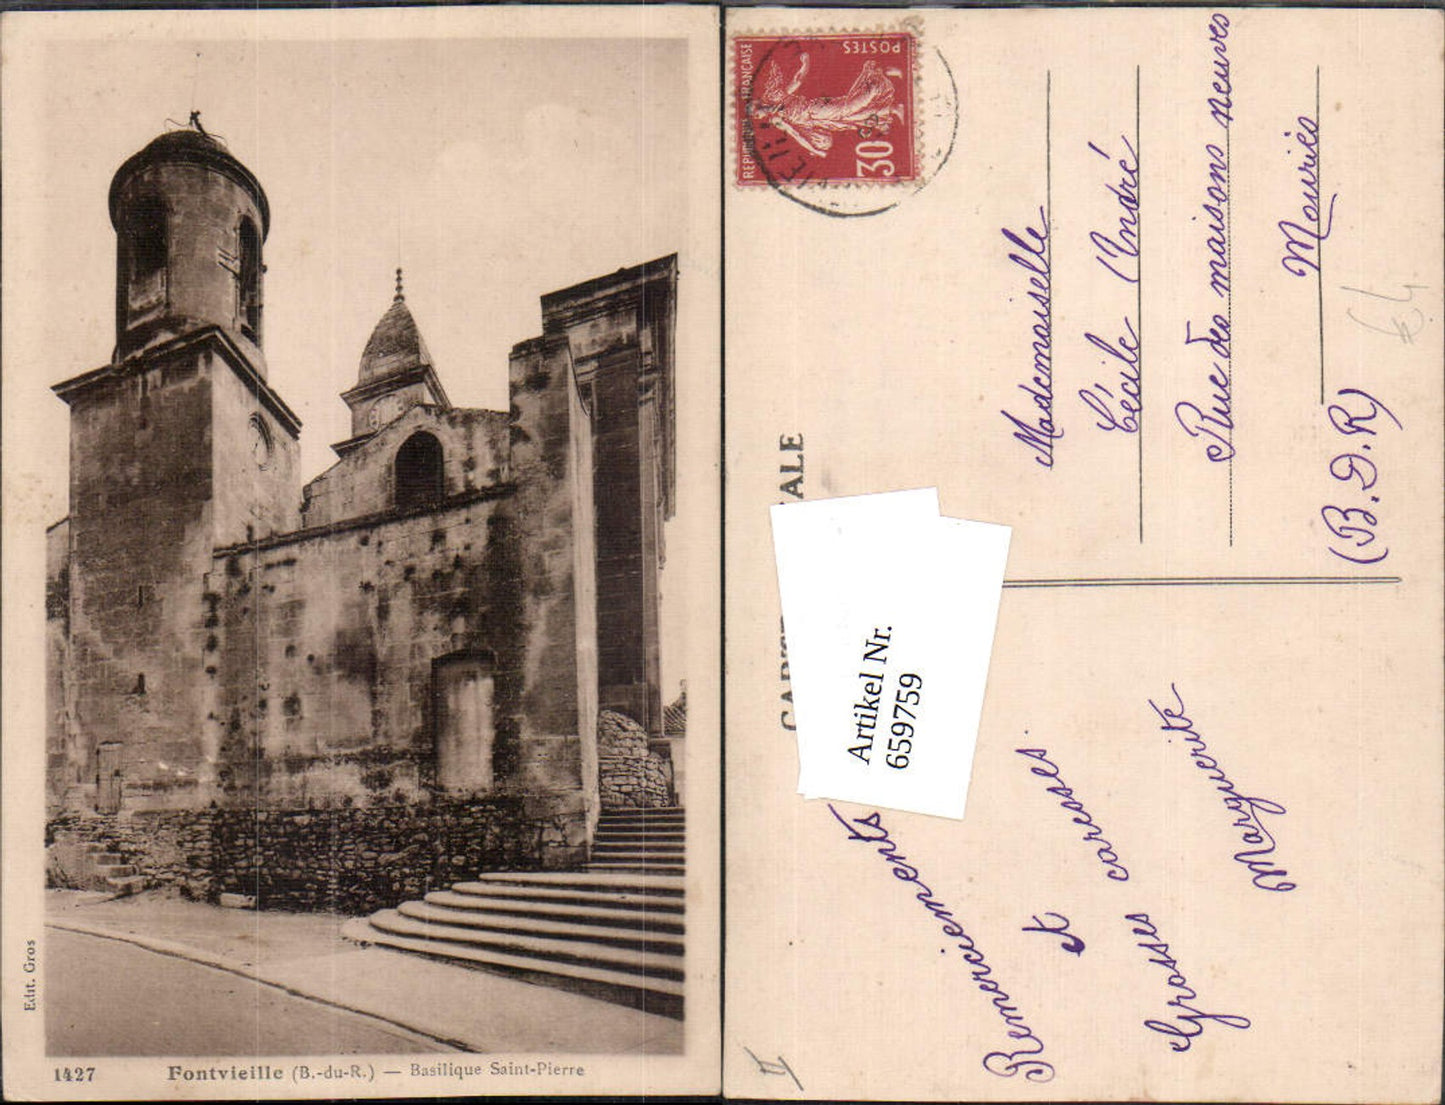 Edit. Gros
1427 Fontvieille (B.-du-R.) — Basilique Saint-Pierre
RÉPUBLIQUE FRANÇAISE
POSTES
30
Artikel Nr.
659759
Mademoiselle
Cécile André
Rue des maisons neuves
Mouriès
(B.D.R)
Remerciements
et caresses.
Grosses
Marguerite